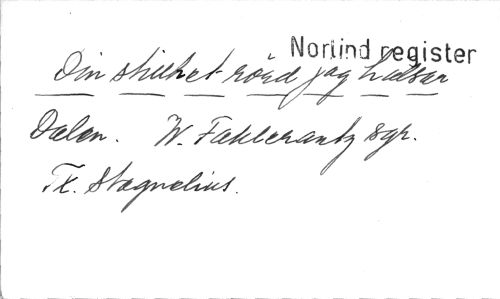 Norlind register
Din stillhet rörd jag hälsar
Dalen. W. Fahlcrantz sgr.
Tx. Stagnelius.